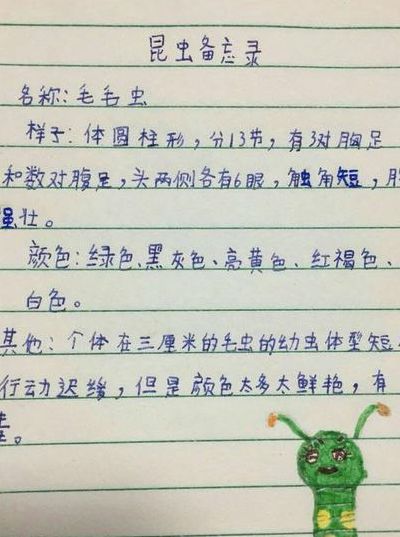 昆虫备忘录
名称:毛毛虫
样子:体圆柱形,分13节,有3对胸足
和数对腹足,头两侧各有6眼,触角短,
壮。
颜色:绿色、黑灰色、亮黄色、红褐色、
白色。
其他:个体在三厘米的毛虫的幼虫体型短
行动迟缓,但是颜色太多太鲜艳,有
。